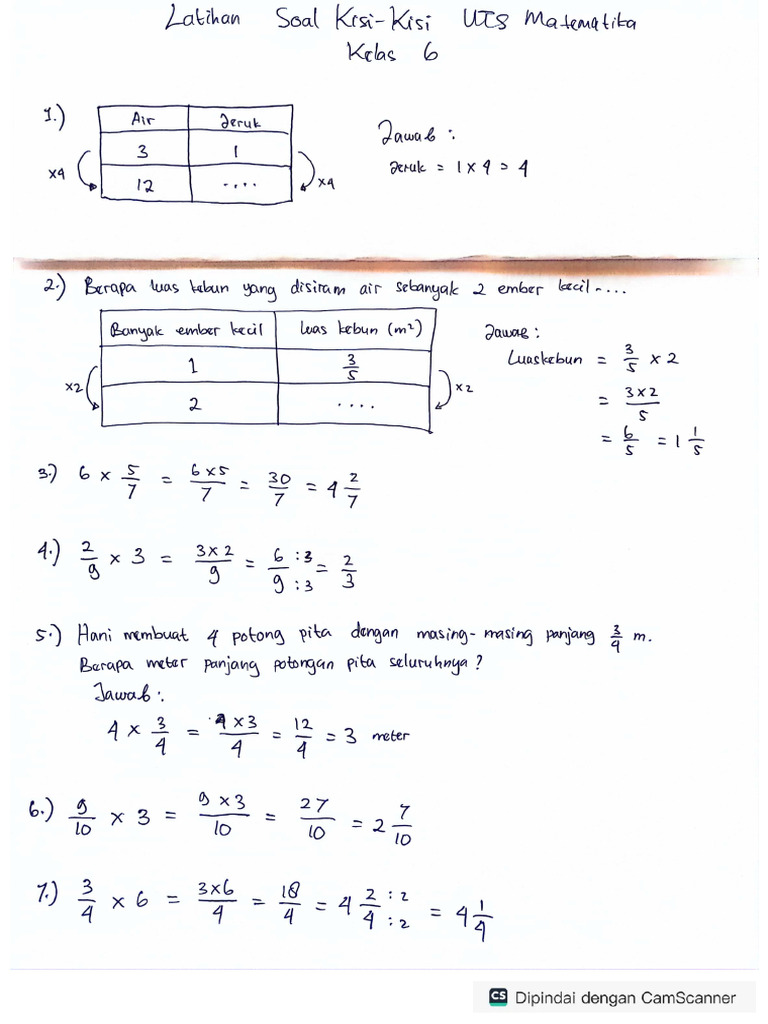 Latihan Soal Kisi-Kisi UTS Matematika
Kelas 6
1.)
Air Jeruk
3 1
x4 12 .... x4
Jawab :
Jeruk = 1 x 4 = 4
2.) Berapa luas kebun yang disiram air sebanyak 2 ember kecil....
Banyak ember kecil luas kebun (m²)
1 3/5
x2 2 .... x2
Jawab :
Luas kebun = 3/5 x 2
= 3x2/5
= 6/5 = 1 1/5
3.) 6 x 5/7 = 6x5/7 = 30/7 = 4 2/7
4.) 2/9 x 3 = 3x2/9 = 6:3/9:3 = 2/3
5.) Hani membuat 4 potong pita dengan masing-masing panjang 3/4 m.
Berapa meter panjang potongan pita seluruhnya?
Jawab :
4 x 3/4 = 4x3/4 = 12/4 = 3 meter
6.) 9/10 x 3 = 9x3/10 = 27/10 = 2 7/10
7.) 3/4 x 6 = 3x6/4 = 18/4 = 4 2:2/4:2 = 4 1/4
CS Dipindai dengan CamScanner